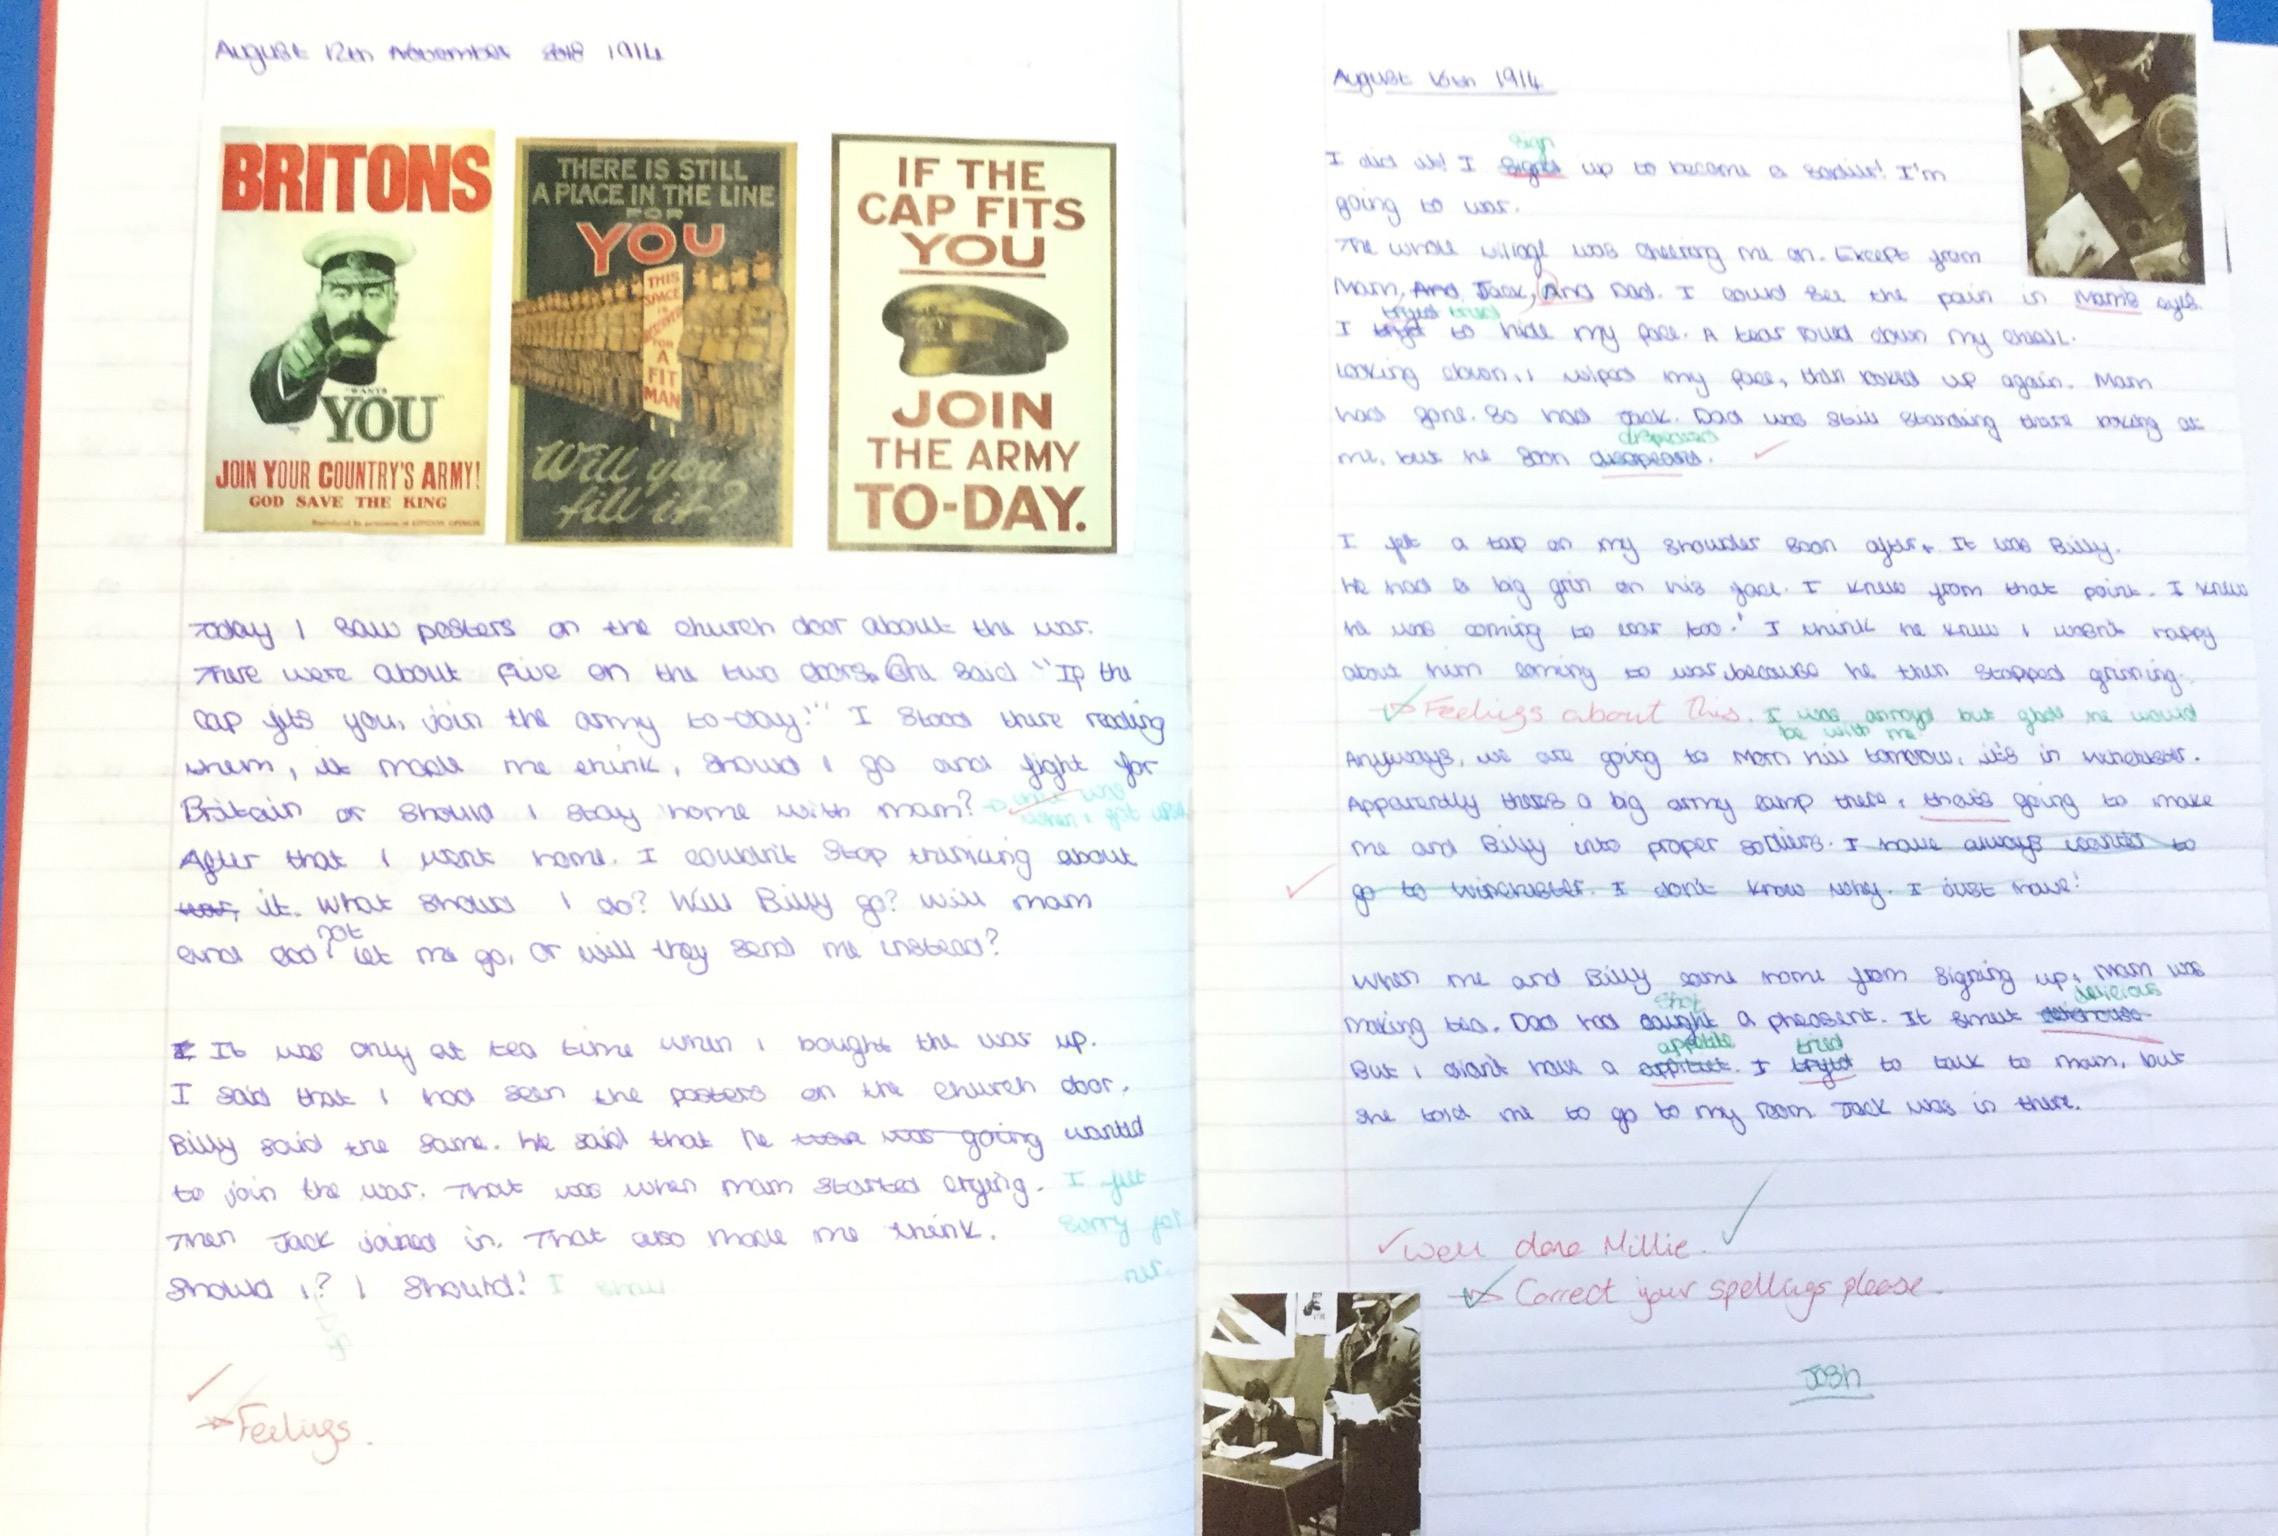 August 12th November 2018 1914
BRITONS
"WANTS
YOU"
JOIN YOUR COUNTRY'S ARMY!
GOD SAVE THE KING
Reproduced by permission of LONDON OPINION
THERE IS STILL
A PLACE IN THE LINE
FOR
YOU
THIS
SPACE
IS
RESERVED
FOR
A
FIT
MAN
Will you
fill it?
IF THE
CAP FITS
YOU
JOIN
THE ARMY
TO-DAY.
Today I saw posters on the church door about the war.
There were about five on the two doors. One said "If the
cap fits you, join the army to-day!" I stood there reading
them, it made me think, should I go and fight for
Britain or should I stay home with mam?
when I got upset
After that I went home. I couldn't stop thinking about
it. What should I do? Will Billy go? Will mam
and dad not let me go, or will they send me instead?
It was only at tea time when I bought the war up.
I said that I had seen the posters on the church door.
Billy said the same. He said that he was going wanted
to join the war. That was when mam started crying. I felt
Then Jack joined in. That also made me think. sorry for
her.
Should I? I should! I
Feelings.
August 16th 1914
sign
I did it! I signd up to become a soldier! I'm
going to war.
The whole village was cheering me on. Except from
Mam, And Jack, And Dad. I could see the pain in Mam's eyes.
tryed tried
I tryed to hide my face. A tear rolled down my cheak.
Looking down, I wiped my face, then looked up again. Mam
had gone. So had Jack. Dad was still standing there looking at
me, but he soon
I felt a tap on my shoulder soon after. It was Billy.
He had a big grin on his face. I knew from that point. I knew
he was coming to war too! I think he knew I wasn't happy
about him coming to war, because he then stopped grinning.
Feelings about this. I was annoyd but glad he would
be with me
Anyways, we are going to Morn hill tomorow, it's in winchester.
Apparently theres a big army camp there, thats going to make
me and Billy into proper soldiers. I have always wanted to
go to winchester. I don't know why. I just have!
When me and Billy came home from signing up, Mam was
shot delicious
making tea. Dad had caught a pheasent. It smelt
appetite tried
But I didn't have a appitiet. I tryed to talk to mam, but
she told me to go to my room Jack was in there.
Well done Millie.
Correct your spellings please.
Josh